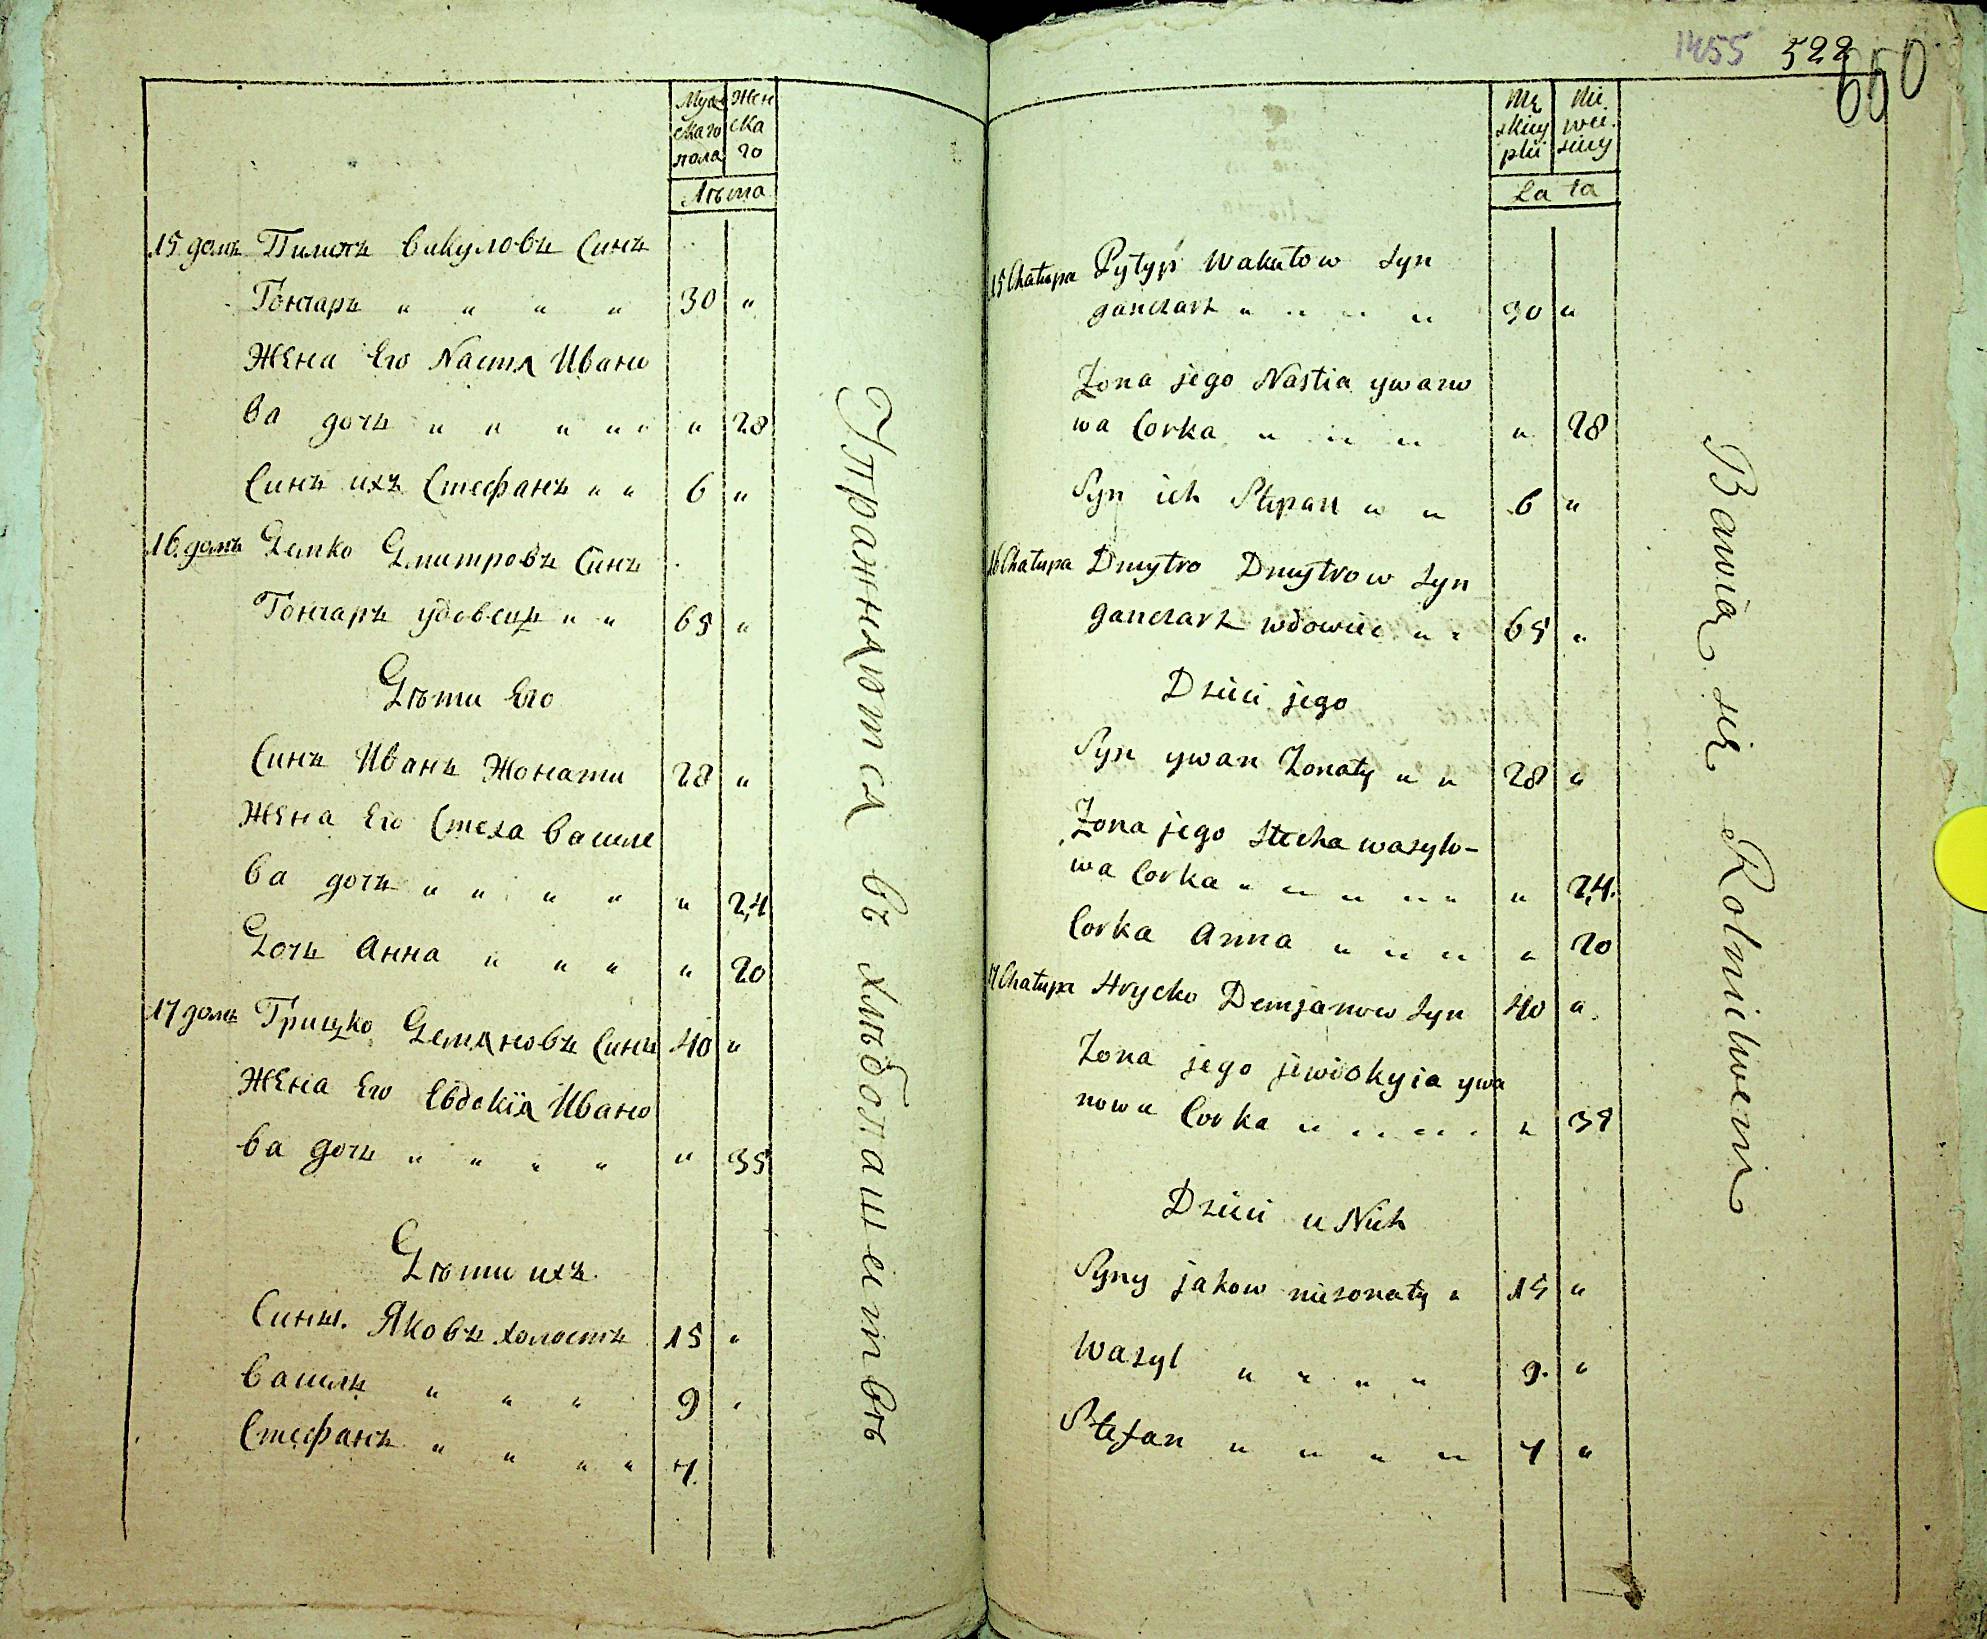 Муж Жен
скаго ска
пола го
Лѣта
15 домъ Пилипъ Вакуловъ Синъ
Гончаръ " " " " 30 "
Жена Его Настя Ивано
ва дочъ " " " " " " 28
Синъ ихъ Стефанъ " " 6 "
16 домъ Демко Дмитровъ Синъ
Гончаръ удовецъ " " 65 "
Дѣти Его
Синъ Иванъ Жонати 28 "
Жена Его Стеха Василе
ва дочъ " " " " " 24
Дочъ Анна " " " " 20
17 домъ Грицко Демяновъ Синъ 40 "
Жена Его Евдокія Ивано
ва дочъ " " " " " 35
Дѣти ихъ
Сины. Яковъ холостъ 15 "
Василь " " " 9 "
Стефанъ " " " " 7.
Упражняются въ хлѣбопашествѣ
1455 522
660
Mę Nie
skiey wie
płci skiey
Lata
15 Chałupa Pyłyp Wakułow Syn
ganczarz " " " " 30 "
Żona jego Nastia ywano
wa Corka " " " " 28
Syn ich Stepan " " 6 "
16 Chałupa Dmytro Dmytrow Syn
ganczarz wdowiec " " 65 "
Dzieci jego
Syn ywan Żonaty " " 28 "
Żona jego Stecha wasylo-
wa Corka " " " " " " 24.
Corka Anna " " " " 20
17 Chałupa Hrycko Demjanow Syn 40 "
Żona jego jewdokyia ywa
nowa Corka " " " " " 38
Dzieci u Nich
Syny jakow nieżonaty " 15 "
Wasyl " " " " 9. "
Stefan " " " " 7 "
Bawią się Rolnictwem